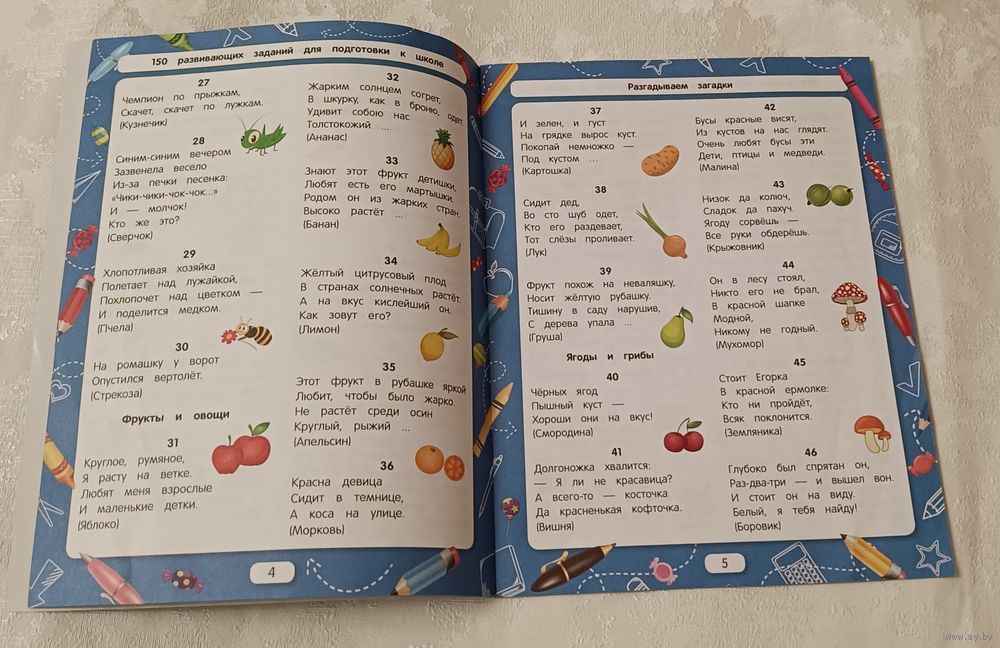 150 развивающих заданий для подготовки к школе
27
Чемпион по прыжкам,
Скачет, скачет по лужкам.
(Кузнечик)
28
Синим-синим вечером
Зазвенела весело
Из-за печки песенка:
«Чики-чики-чок-чок...»
И — молчок!
Кто же это?
(Сверчок)
29
Хлопотливая хозяйка
Полетает над лужайкой,
Похлопочет над цветком —
И поделится медком.
(Пчела)
30
На ромашку у ворот
Опустился вертолёт.
(Стрекоза)
Фрукты и овощи
31
Круглое, румяное,
Я расту на ветке.
Любят меня взрослые
И маленькие детки.
(Яблоко)
32
Жарким солнцем согрет,
В шкурку, как в броню, одет.
Удивит собою нас
Толстокожий ...
(Ананас)
33
Знают этот фрукт детишки,
Любят есть его мартышки.
Родом он из жарких стран.
Высоко растёт ...
(Банан)
34
Жёлтый цитрусовый плод
В странах солнечных растёт.
А на вкус кислейший он.
Как зовут его?
(Лимон)
35
Этот фрукт в рубашке яркой
Любит, чтобы было жарко.
Не растёт среди осин
Круглый, рыжий ...
(Апельсин)
36
Красна девица
Сидит в темнице,
А коса на улице.
(Морковь)
4
Разгадываем загадки
37
И зелен, и густ
На грядке вырос куст.
Покопай немножко —
Под кустом ...
(Картошка)
38
Сидит дед,
Во сто шуб одет,
Кто его раздевает,
Тот слёзы проливает.
(Лук)
39
Фрукт похож на неваляшку,
Носит жёлтую рубашку.
Тишину в саду нарушив,
С дерева упала ...
(Груша)
Ягоды и грибы
40
Чёрных ягод
Пышный куст —
Хороши они на вкус!
(Смородина)
41
Долгоножка хвалится:
— Я ли не красавица?
А всего-то — косточка
Да красненькая кофточка.
(Вишня)
42
Бусы красные висят,
Из кустов на нас глядят.
Очень любят бусы эти
Дети, птицы и медведи.
(Малина)
43
Низок да колюч,
Сладок да пахуч.
Ягоду сорвёшь —
Все руки обдерёшь.
(Крыжовник)
44
Он в лесу стоял,
Никто его не брал,
В красной шапке
Модной,
Никому не годный.
(Мухомор)
45
Стоит Егорка
В красной ермолке:
Кто ни пройдёт,
Всяк поклонится.
(Земляника)
46
Глубоко был спрятан он,
Раз-два-три — и вышел вон.
И стоит он на виду.
Белый, я тебя найду!
(Боровик)
5
www.ay.by